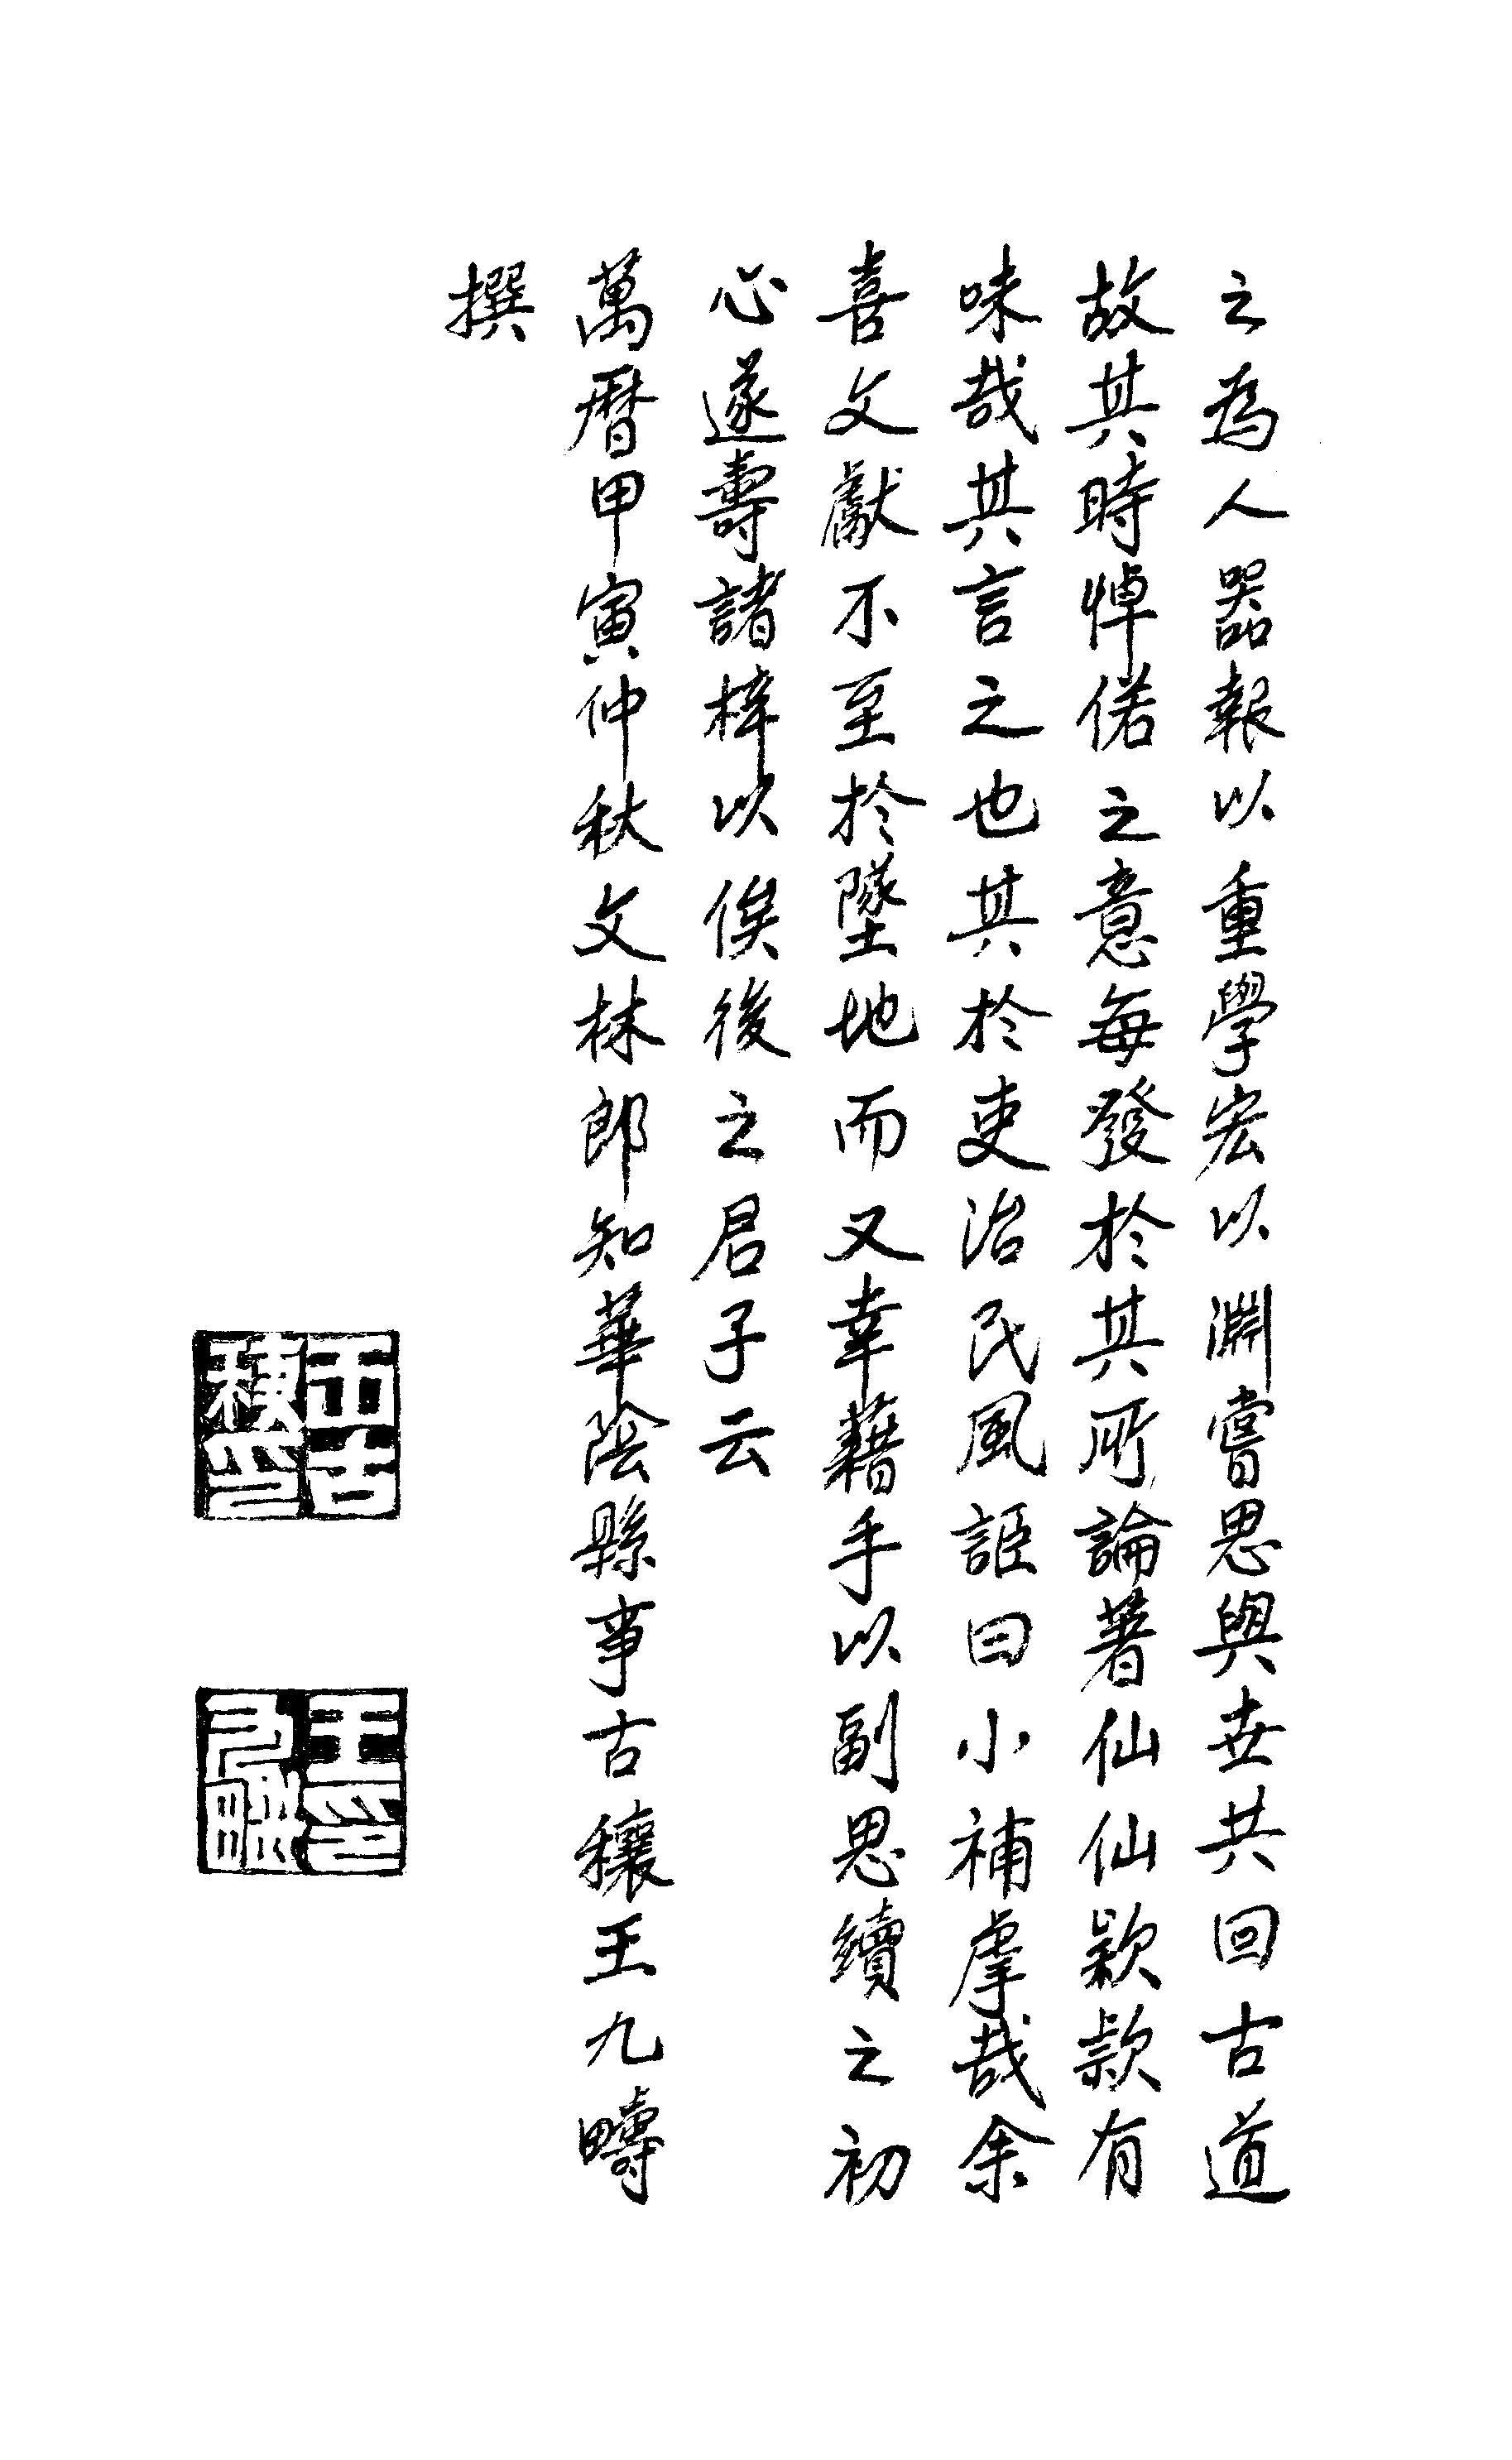 之為人器報以重學宏以淵嘗思與世共回古道
故其時悼偌之意每發於其所論著仙仙款款有
味哉其言之也其於吏治民風詎曰小補虖哉余
喜文獻不至於墜地而又幸藉手以副思續之初
心遂壽諸梓以俟後之君子云
萬曆甲寅仲秋文林郎知華陰縣事古穰王九疇
撰
王印九疇